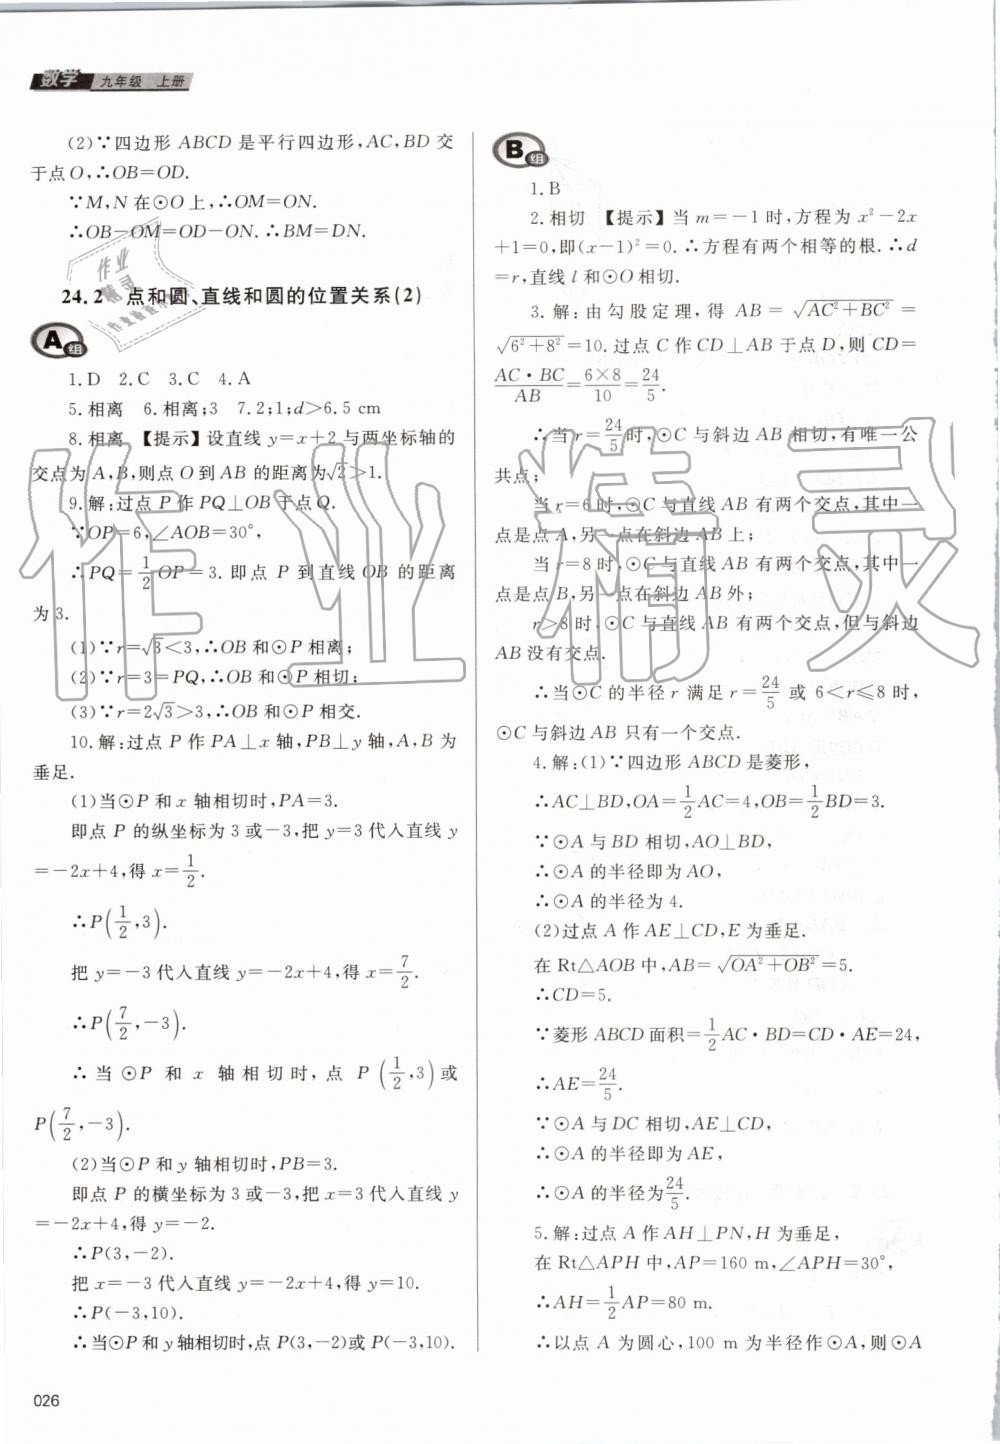 数学 九年级 上册
(2)∵四边形 ABCD 是平行四边形,AC,BD 交
于点 O,∴OB=OD.
∵M,N 在⊙O 上,∴OM=ON.
∴OB-OM=OD-ON.∴BM=DN.
24.2 点和圆、直线和圆的位置关系(2)
A组
1.D 2.C 3.C 4.A
5.相离 6.相离;3 7.2;1;d>6.5 cm
8.相离 【提示】设直线 y=x+2 与两坐标轴的
交点为 A,B,则点 O 到 AB 的距离为√2>1.
9.解:过点 P 作 PQ⊥OB 于点 Q.
∵OP=6,∠AOB=30°,
∴PQ=1/2 OP=3.即点 P 到直线 OB 的距离
为 3.
(1)∵r=√3<3,∴OB 和⊙P 相离;
(2)∵r=3=PQ,∴OB 和⊙P 相切;
(3)∵r=2√3>3,∴OB 和⊙P 相交.
10.解:过点 P 作 PA⊥x 轴,PB⊥y 轴,A,B 为
垂足.
(1)当⊙P 和 x 轴相切时,PA=3.
即点 P 的纵坐标为 3 或-3,把 y=3 代入直线 y
=-2x+4,得 x=1/2.
∴P(1/2,3).
把 y=-3 代入直线 y=-2x+4,得 x=7/2.
∴P(7/2,-3).
∴当⊙P 和 x 轴相切时,点 P(1/2,3)或
P(7/2,-3).
(2)当⊙P 和 y 轴相切时,PB=3.
即点 P 的横坐标为 3 或-3,把 x=3 代入直线 y
=-2x+4,得 y=-2.
∴P(3,-2).
把 x=-3 代入直线 y=-2x+4,得 y=10.
∴P(-3,10).
∴当⊙P 和 y 轴相切时,点 P(3,-2)或 P(-3,10).
026
B组
1.B
2.相切 【提示】当 m=-1 时,方程为 x²-2x
+1=0,即(x-1)²=0.∴方程有两个相等的根.∴d
=r,直线 l 和⊙O 相切.
3.解:由勾股定理,得 AB=√(AC²+BC²)=
√(6²+8²)=10.过点 C 作 CD⊥AB 于点 D,则 CD=
AC·BC/AB=6×8/10=24/5.
∴当 r=24/5时,⊙C 与斜边 AB 相切,有唯一公
共点;
当 r=6 时,⊙C 与直线 AB 有两个交点,其中一
点是点 A,另一点在斜边 AB 上;
当 r=8 时,⊙C 与直线 AB 有两个交点,其中一
点是点 B,另一点在斜边 AB 外;
r>8 时,⊙C 与直线 AB 有两个交点,但与斜边
AB 没有交点.
∴当⊙C 的半径 r 满足 r=24/5 或 6<r≤8 时,
⊙C 与斜边 AB 只有一个交点.
4.解:(1)∵四边形 ABCD 是菱形,
∴AC⊥BD,OA=1/2AC=4,OB=1/2BD=3.
∵⊙A 与 BD 相切,AO⊥BD,
∴⊙A 的半径即为 AO,
∴⊙A 的半径为 4.
(2)过点 A 作 AE⊥CD,E 为垂足.
在 Rt△AOB 中,AB=√(OA²+OB²)=5.
∴CD=5.
∵菱形 ABCD 面积=1/2AC·BD=CD·AE=24,
∴AE=24/5.
∵⊙A 与 DC 相切,AE⊥CD,
∴⊙A 的半径即为 AE,
∴⊙A 的半径为24/5.
5.解:过点 A 作 AH⊥PN,H 为垂足,
在 Rt△APH 中,AP=160 m,∠APH=30°,
∴AH=1/2AP=80 m.
∴以点 A 为圆心,100 m 为半径作⊙A,则⊙A
作业精灵